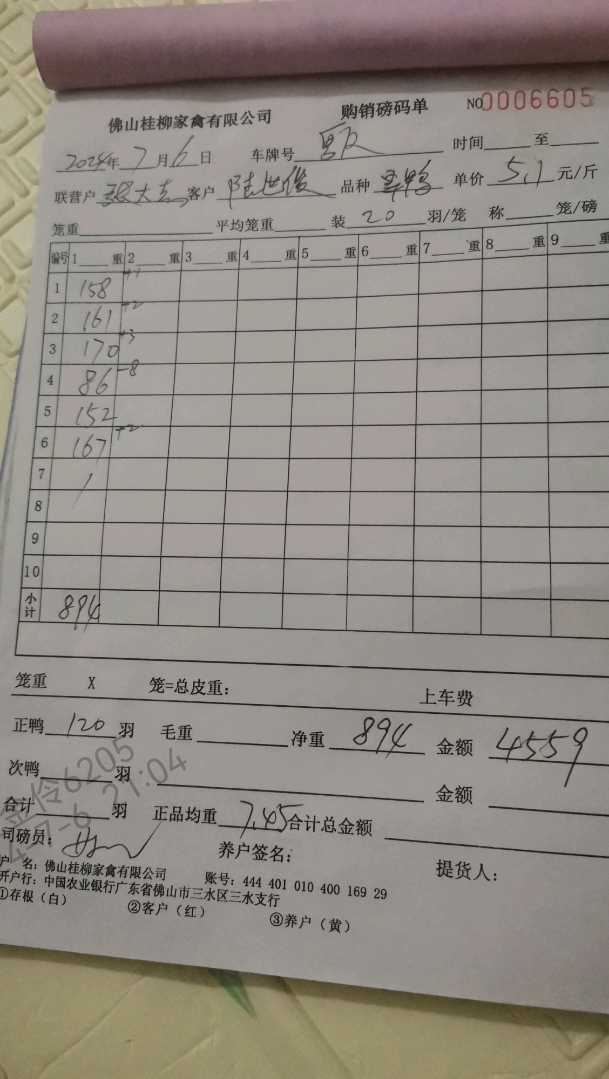 佛山桂柳家禽有限公司 购销磅码单 NO 0006605
2024年 7月 6日 车牌号 时间 至
联营户 张大 客户 陆世俊 品种 鸭 单价 5.1 元/斤
笼重 平均笼重 装 20 羽/笼 称 笼/磅
编号 1 重 2 重 3 重 4 重 5 重 6 重 7 重 8 重 9 重
1 158 +1
2 161 +2
3 170 +3
4 86 -8
5 152
6 167 +2
7 /
8
9
10
小计 894
笼重 X 笼=总皮重: 上车费
正鸭 120 羽 毛重 净重 894 金额 4559
次鸭 羽 金额
合计 羽 正品均重 7.45 合计总金额
司磅员: 养户签名: 提货人:
户 名: 佛山桂柳家禽有限公司 账号: 444 401 010 400 169 29
开户行: 中国农业银行广东省佛山市三水区三水支行
①存根（白） ②客户（红） ③养户（黄）
伶6205
7-6 21:04